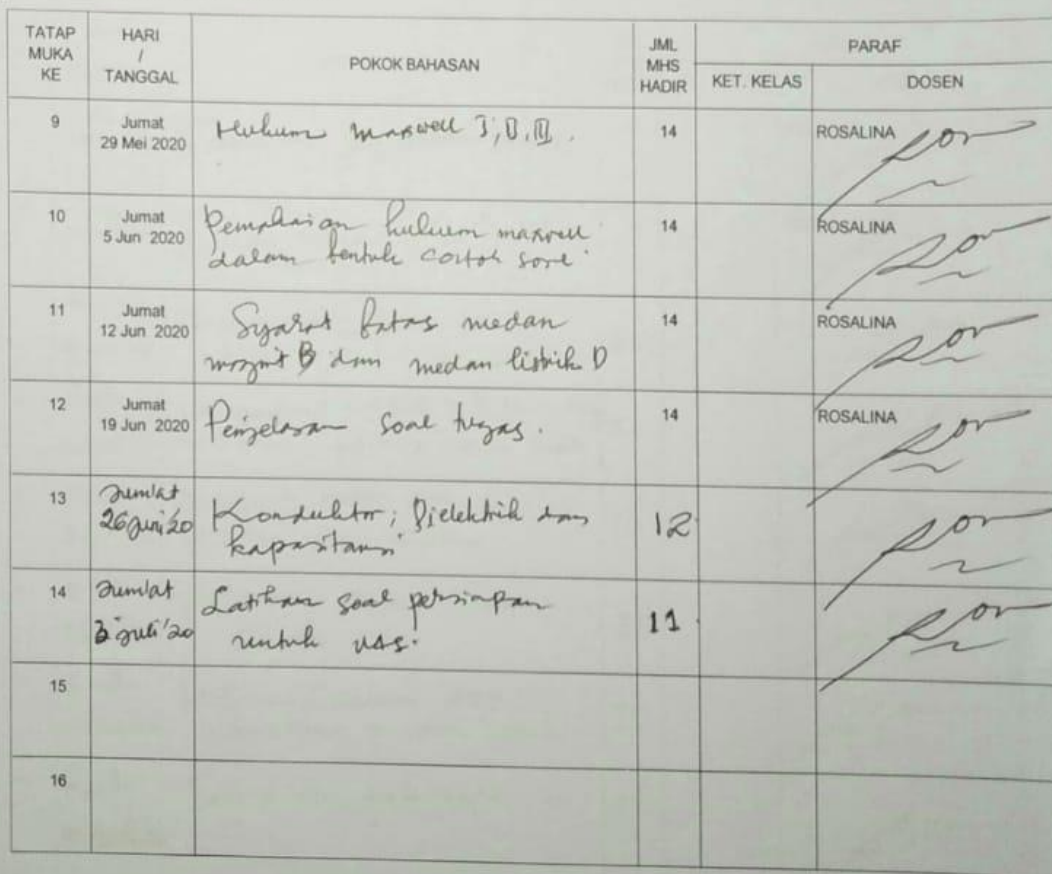 TATAP MUKA KE
HARI / TANGGAL
POKOK BAHASAN
JML MHS HADIR
PARAF
KET. KELAS
DOSEN
9
Jumat
29 Mei 2020
Hukum maxwell I, II, III.
14
ROSALINA
10
Jumat
5 Jun 2020
Pemakaian hukum maxwell
dalam bentuk contoh
14
ROSALINA
11
Jumat
12 Jun 2020
Syarat batas medan
magnit B dan medan listrik D
14
ROSALINA
12
Jumat
19 Jun 2020
Penjelasan soal tugas.
14
ROSALINA
13
Jum'at
26 Juni '20
Konduktor, Dielektrik dan
kapasitansi
12
14
Jum'at
3 Juli '20
Latihan soal persiapan
untuk UAS.
11
15
16